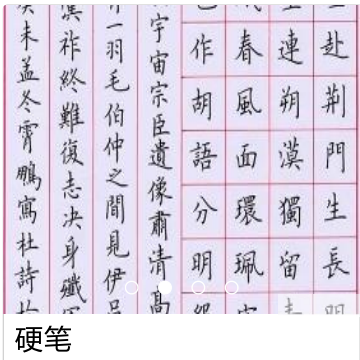 赴荊門生長明
連朔漠獨留青
春風面環珮空
作胡語分明怨
宇宙宗臣遺像肅清高
一羽毛伯仲之間見伊呂
祚終難復志决身殲
癸未孟冬霄鵬寫杜詩於
硬笔